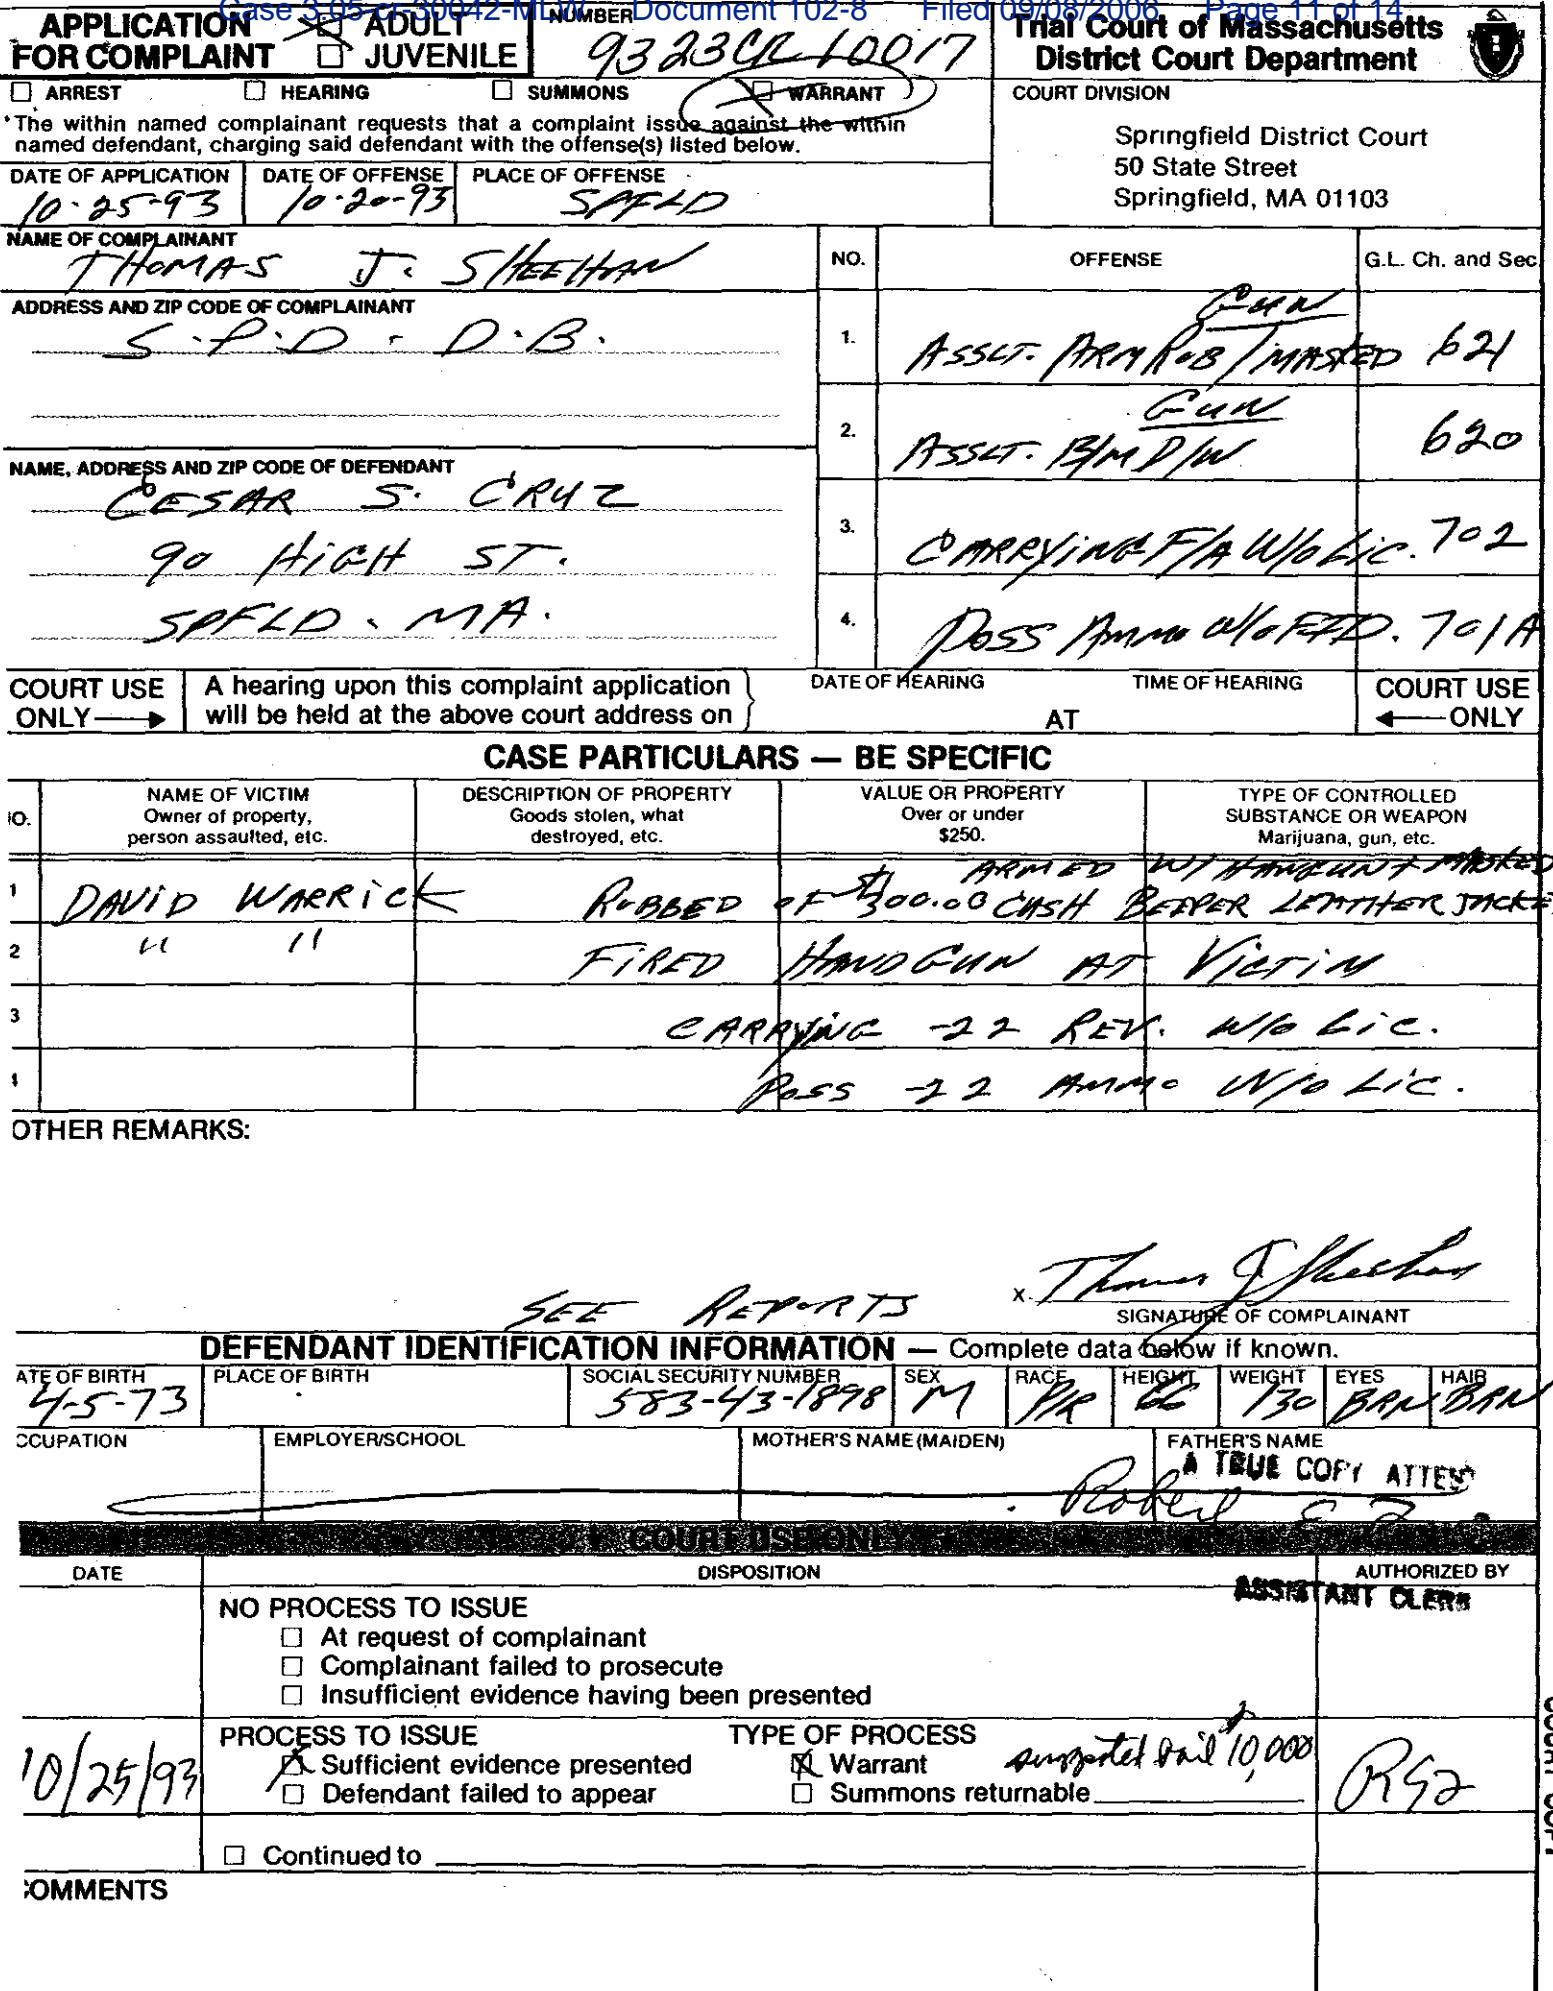 Case 3:05-cr-30042-MLW Document 102-8 Filed 09/08/2006 Page 11 of 14
APPLICATION FOR COMPLAINT
☒ ADULT
☐ JUVENILE
NUMBER
9323CR10017
Trial Court of Massachusetts
District Court Department
☐ ARREST ☐ HEARING ☐ SUMMONS ☒ WARRANT
The within named complainant requests that a complaint issue against the within
named defendant, charging said defendant with the offense(s) listed below.
COURT DIVISION
Springfield District Court
50 State Street
Springfield, MA 01103
DATE OF APPLICATION DATE OF OFFENSE PLACE OF OFFENSE
10-25-93 10-20-93 SPFLD
NAME OF COMPLAINANT
THOMAS J. SHEEHAN
ADDRESS AND ZIP CODE OF COMPLAINANT
S.P.D. D.B.
NAME, ADDRESS AND ZIP CODE OF DEFENDANT
CESAR S. CRUZ
90 HIGH ST.
SPFLD. MA.
NO. OFFENSE G.L. Ch. and Sec
Gun
1. ASSLT. ARM ROB/MASKED 621
Gun
2. ASSLT. B/M D/W 620
3. CARRYING F/A W/o Lic. 702
4. Poss Ammo W/o FID. 701A
COURT USE ONLY
A hearing upon this complaint application
will be held at the above court address on
DATE OF HEARING
AT
TIME OF HEARING
COURT USE ONLY
CASE PARTICULARS — BE SPECIFIC
NO. NAME OF VICTIM DESCRIPTION OF PROPERTY VALUE OR PROPERTY TYPE OF CONTROLLED
Owner of property, Goods stolen, what Over or under SUBSTANCE OR WEAPON
person assaulted, etc. destroyed, etc. $250. Marijuana, gun, etc.
ARMED W/ HANDGUN + MASKED
1 DAVID WARRICK ROBBED OF $300.00 CASH BEEPER LEATHER JACKE
2 " " FIRED HANDGUN AT VICTIM
3 CARRYING -22 REV. W/o Lic.
4 Poss -22 Ammo W/o Lic.
OTHER REMARKS:
SEE REPORTS
x Thomas J Sheehan
SIGNATURE OF COMPLAINANT
DEFENDANT IDENTIFICATION INFORMATION — Complete data below if known.
ATE OF BIRTH PLACE OF BIRTH SOCIAL SECURITY NUMBER SEX RACE HEIGHT WEIGHT EYES HAIR
4-5-73 583-43-1898 M P/R 66 130 BRN BRN
CCUPATION EMPLOYER/SCHOOL MOTHER'S NAME (MAIDEN) FATHER'S NAME
A TRUE COPY ATTEST
Robert
COURT USE ONLY
DATE DISPOSITION AUTHORIZED BY
ASSISTANT CLERK
NO PROCESS TO ISSUE
☐ At request of complainant
☐ Complainant failed to prosecute
☐ Insufficient evidence having been presented
10/25/93
PROCESS TO ISSUE
☒ Sufficient evidence presented
☐ Defendant failed to appear
TYPE OF PROCESS
☒ Warrant suggested bail 10,000
☐ Summons returnable
☐ Continued to
COMMENTS
COURT COPY